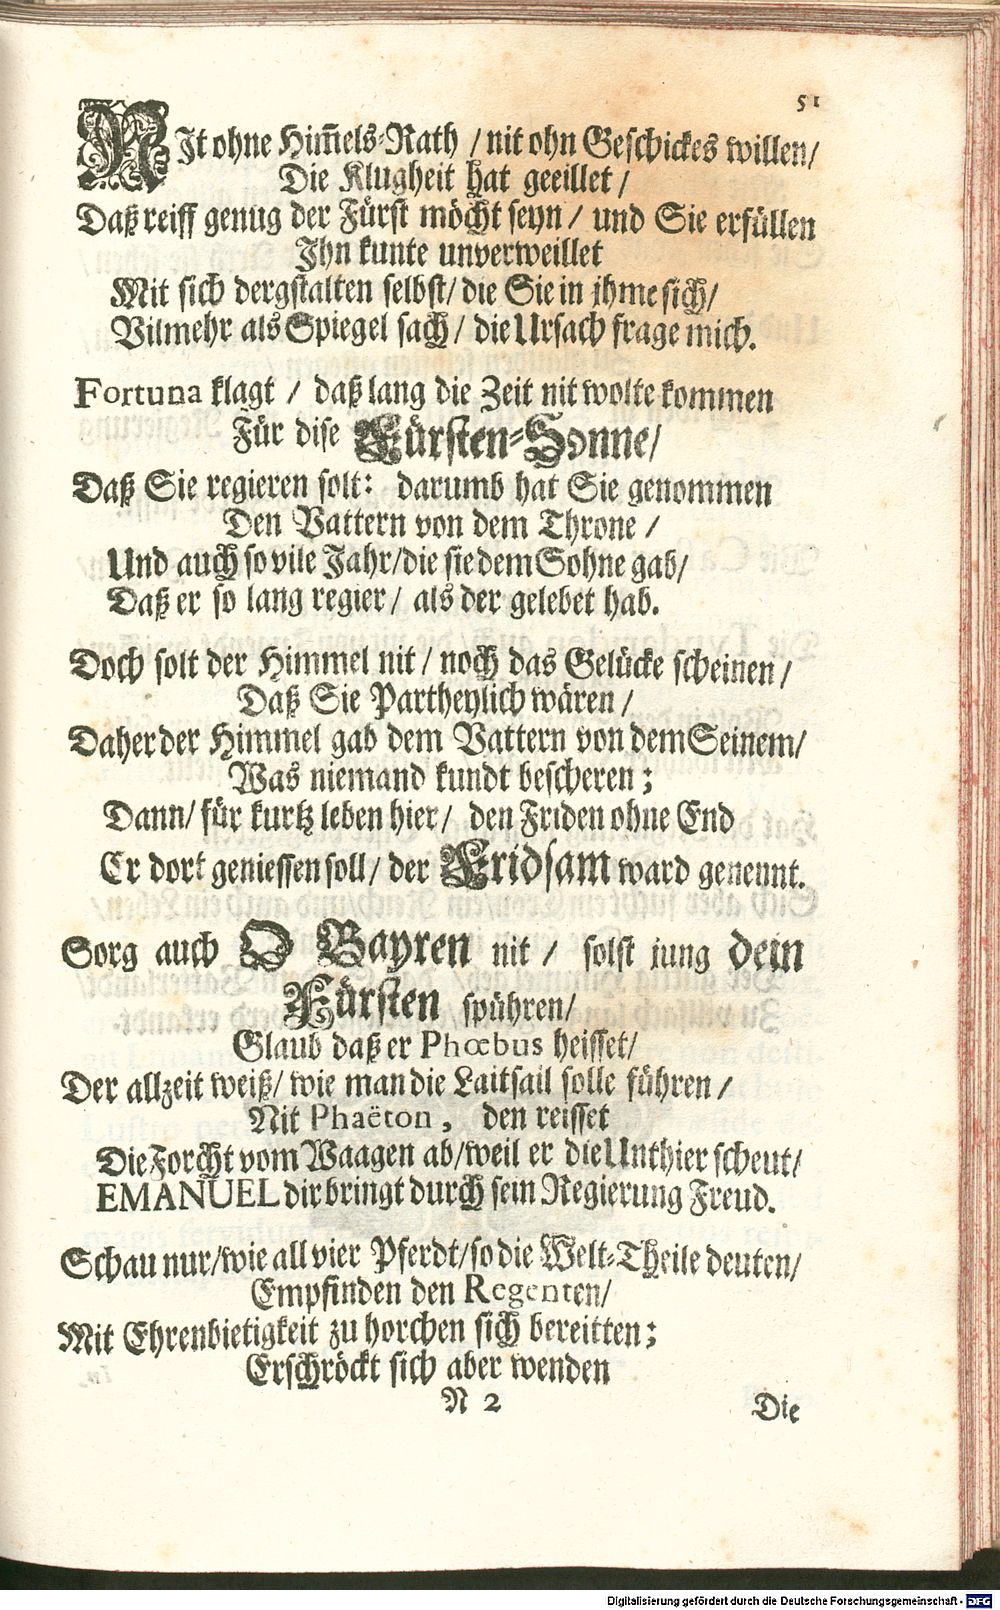 51
NIt ohne Him̄els-Rath / nit ohn Geschickes willen/
Die Klugheit hat geeillet /
Daß reiff genug der Fürst möcht seyn / und Sie erfüllen
Ihn kunte unverweillet
Mit sich dergstalten selbst/ die Sie in jhme sich/
Vilmehr als Spiegel sach/ die Ursach frage mich.
Fortuna klagt / daß lang die Zeit nit wolte kommen
Für dise Fürsten-Sonne/
Daß Sie regieren solt: darumb hat Sie genommen
Den Vattern von dem Throne /
Und auch so vile Jahr/die sie dem Sohne gab/
Daß er so lang regier/ als der gelebet hab.
Doch solt der Himmel nit / noch das Gelücke scheinen /
Daß Sie Partheylich wären /
Daher der Himmel gab dem Vattern von dem Seinem/
Was niemand kundt bescheren;
Dann/ für kurtz leben hier/ den Friden ohne End
Er dort geniessen soll/ der Fridsam ward genennt.
Sorg auch O Bayren nit / solst jung dein
Fürsten spühren/
Glaub daß er Phœbus heisset/
Der allzeit weiß/ wie man die Laitsail solle führen /
Nit Phaëton, den reisset
Die Forcht vom Waagen ab/weil er die Unthier scheut/
EMANUEL dir bringt durch sein Regierung Freud.
Schau nur/wie all vier Pferdt/so die Welt-Theile deuten/
Empfinden den Regenten/
Mit Ehrenbietigkeit zu horchen sich bereitten;
Erschröckt sich aber wenden
N 2
Die
Digitalisierung gefördert durch die Deutsche Forschungsgemeinschaft - DFG